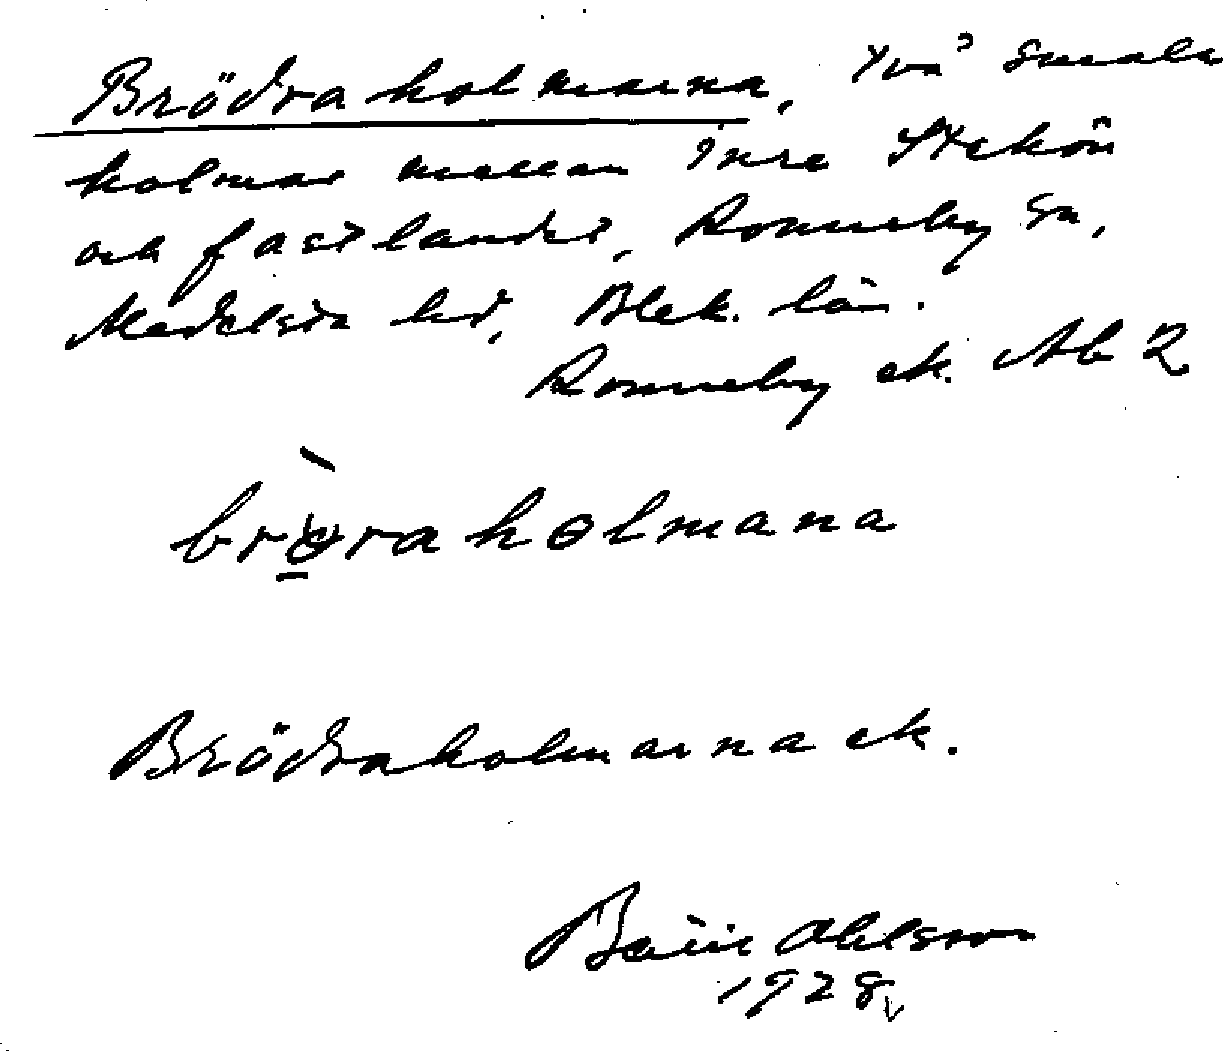 Brödraholmarna, två smala
holmar mellan Inre Stekön
och fastlandet, Ronneby sn,
Medelsta hd, Blek. län.
Ronneby ek. Ab 2
brøraholmana
Brödraholmarna ek.
Ohlsson
1928